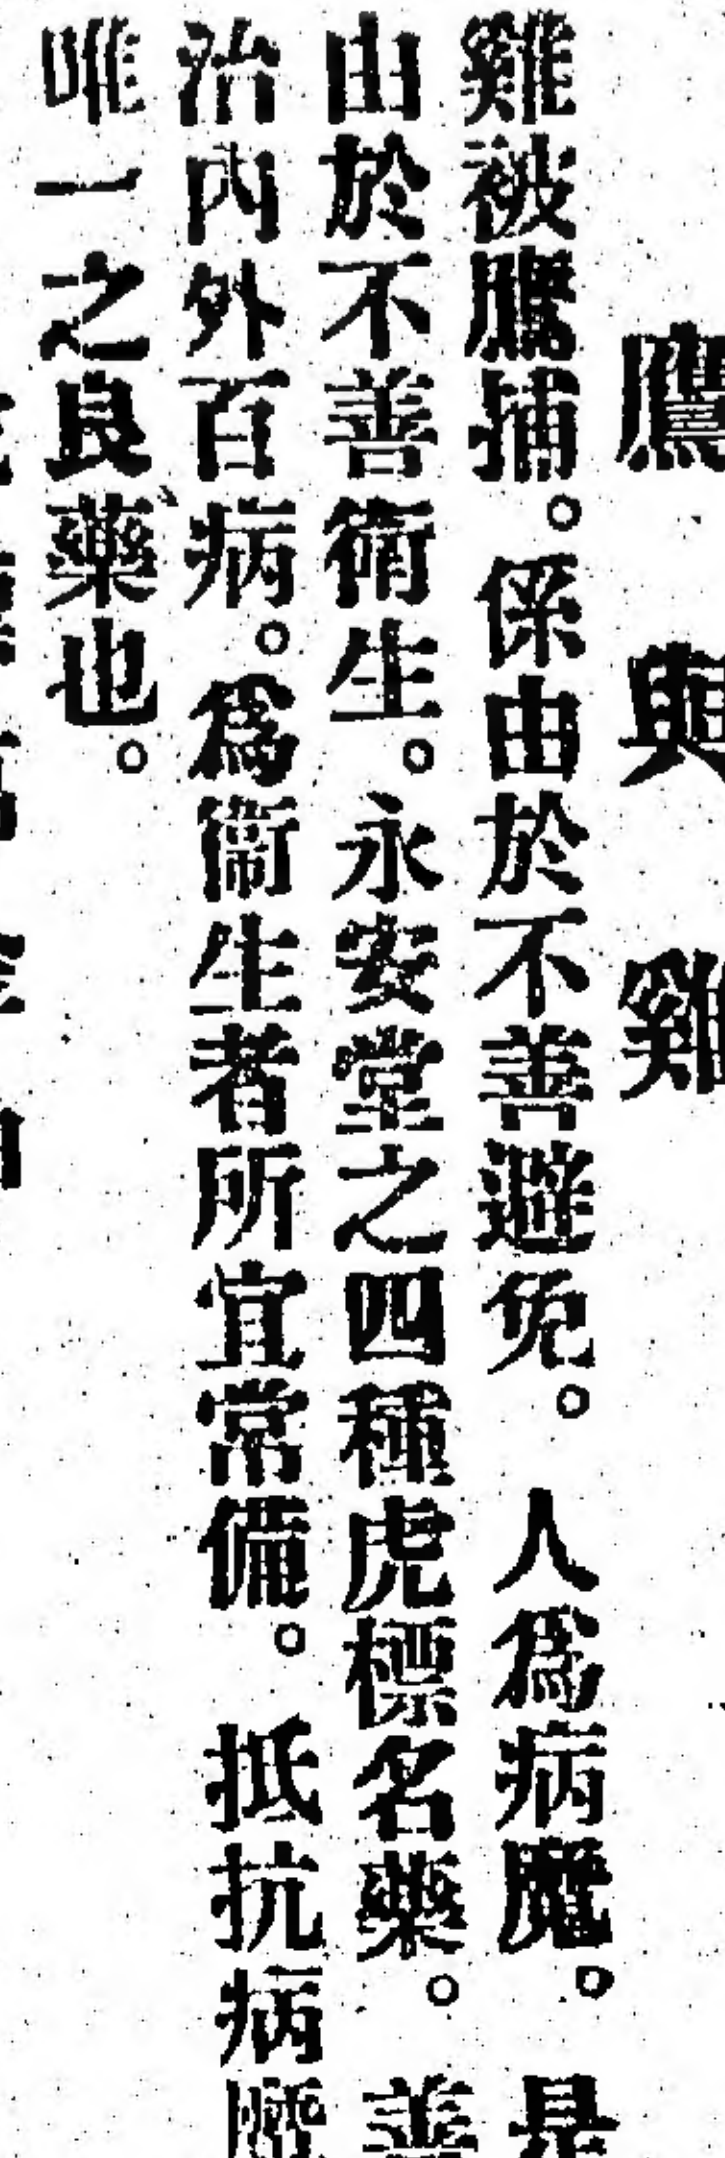 鷹與雞
雞被鷹捕。係由於不善避免。人為病魔。是
由於不善衛生。永安堂之四種虎標名藥。善
治內外百病。為衞生者所宜常備。抵抗病魔
唯一之良藥也。